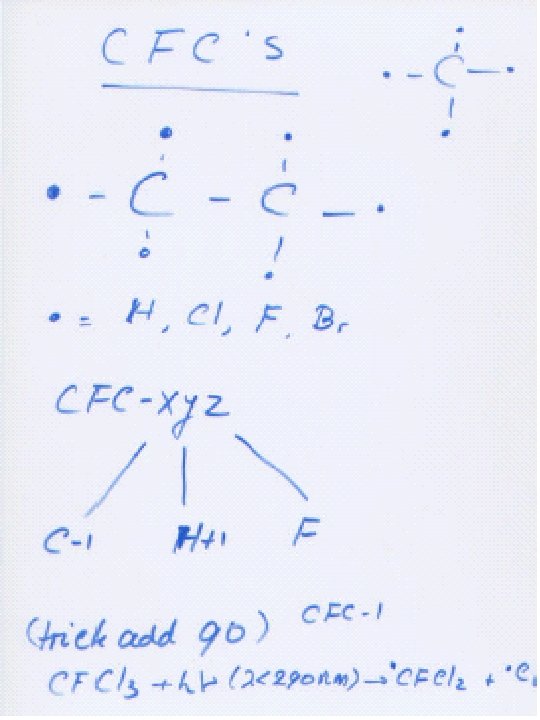 CFC's
• - C - •
• - C - C - •
• = H, Cl, F, Br
CFC-xyz
C-1 H+1 F
(trick add 90) CFC-1
CFCl3 + hν (λ<290nm) → •CFCl2 + •C